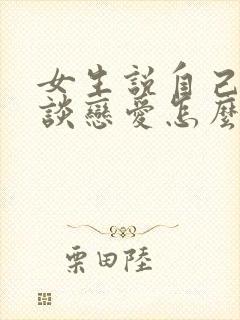 女生說自己
談戀愛怎麼
栗田陸